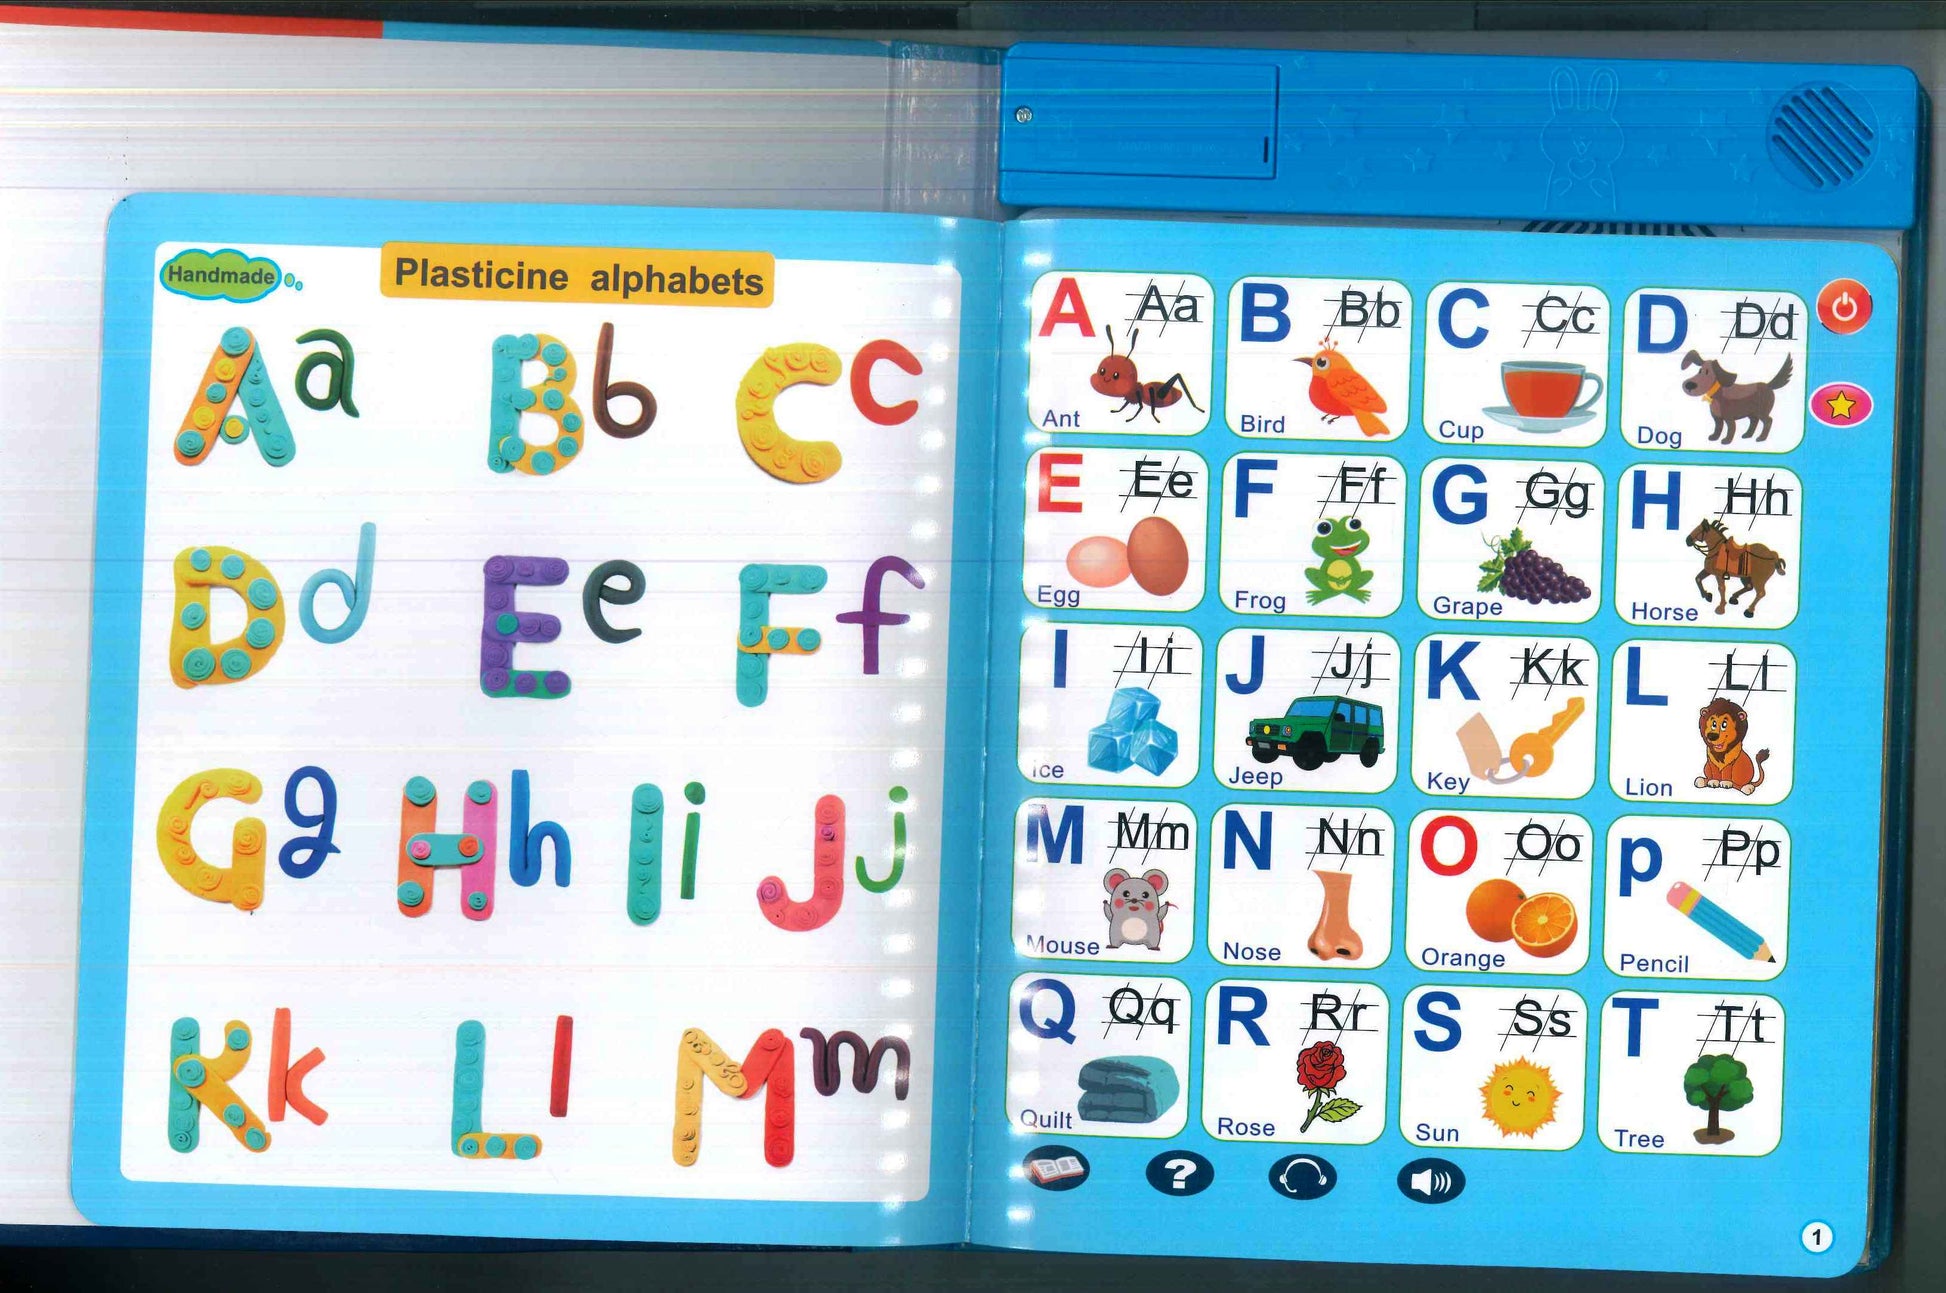 Handmade
Plasticine alphabets
A a
B b
C c
D d
E e
F f
G g
H h
I i
J j
K k
L l
M m
A Aa
Ant
B Bb
Bird
C Cc
Cup
D Dd
Dog
E Ee
Egg
F Ff
Frog
G Gg
Grape
H Hh
Horse
I Ii
Ice
J Jj
Jeep
K Kk
Key
L Ll
Lion
M Mm
Mouse
N Nn
Nose
O Oo
Orange
p Pp
Pencil
Q Qq
Quilt
R Rr
Rose
S Ss
Sun
T Tt
Tree
?
1